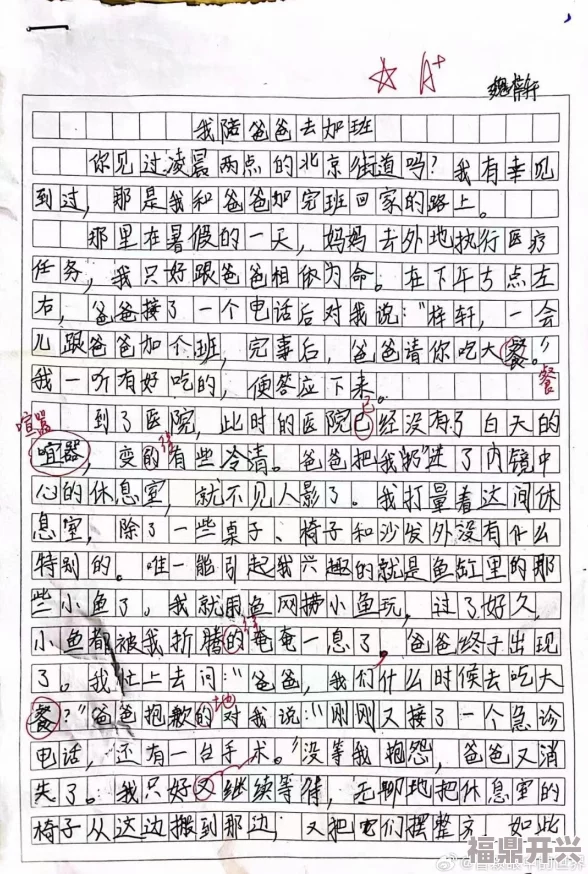 A+
我陪爸爸去加班
你见过凌晨两点的北京街道吗？我有幸见
到过，那是我和爸爸加完班回家的路上。
那里在暑假的一天，妈妈去外地执行医疗
任务，我只好跟爸爸相依为命。在下午5点左
右，爸爸接了一个电话后对我说：“梓轩，一会
儿跟爸爸加个班，完事后，爸爸请你吃大餐。”
餐
我一听有好吃的，便答应下来。
喧嚣
已
到了医院，此时的医院已经没有了白天的
得
喧嚣，变的有些冷清。爸爸把我“扔”进了内镜中
心的休息室，就不见人影了。我打量着这间休
息室，除了一些桌子、椅子和沙发外没有什么
特别的。唯一能引起我兴趣的就是鱼缸里的那
些小鱼了，我就用鱼网捞小鱼玩，过了好久，
得
小鱼都被我折腾的奄奄一息了。爸爸终于出现
了。我忙上去问：“爸爸，我们什么时侯去吃大
地
餐？”爸爸抱歉的对我说：“刚刚又接了一个急诊
电话，还有一台手术。”没等我抱怨，爸爸又消
失了。我只好又继续等待，无聊地把休息室的
椅子从这边搬到那边，又把它们摆整齐，如此
福鼎开兴